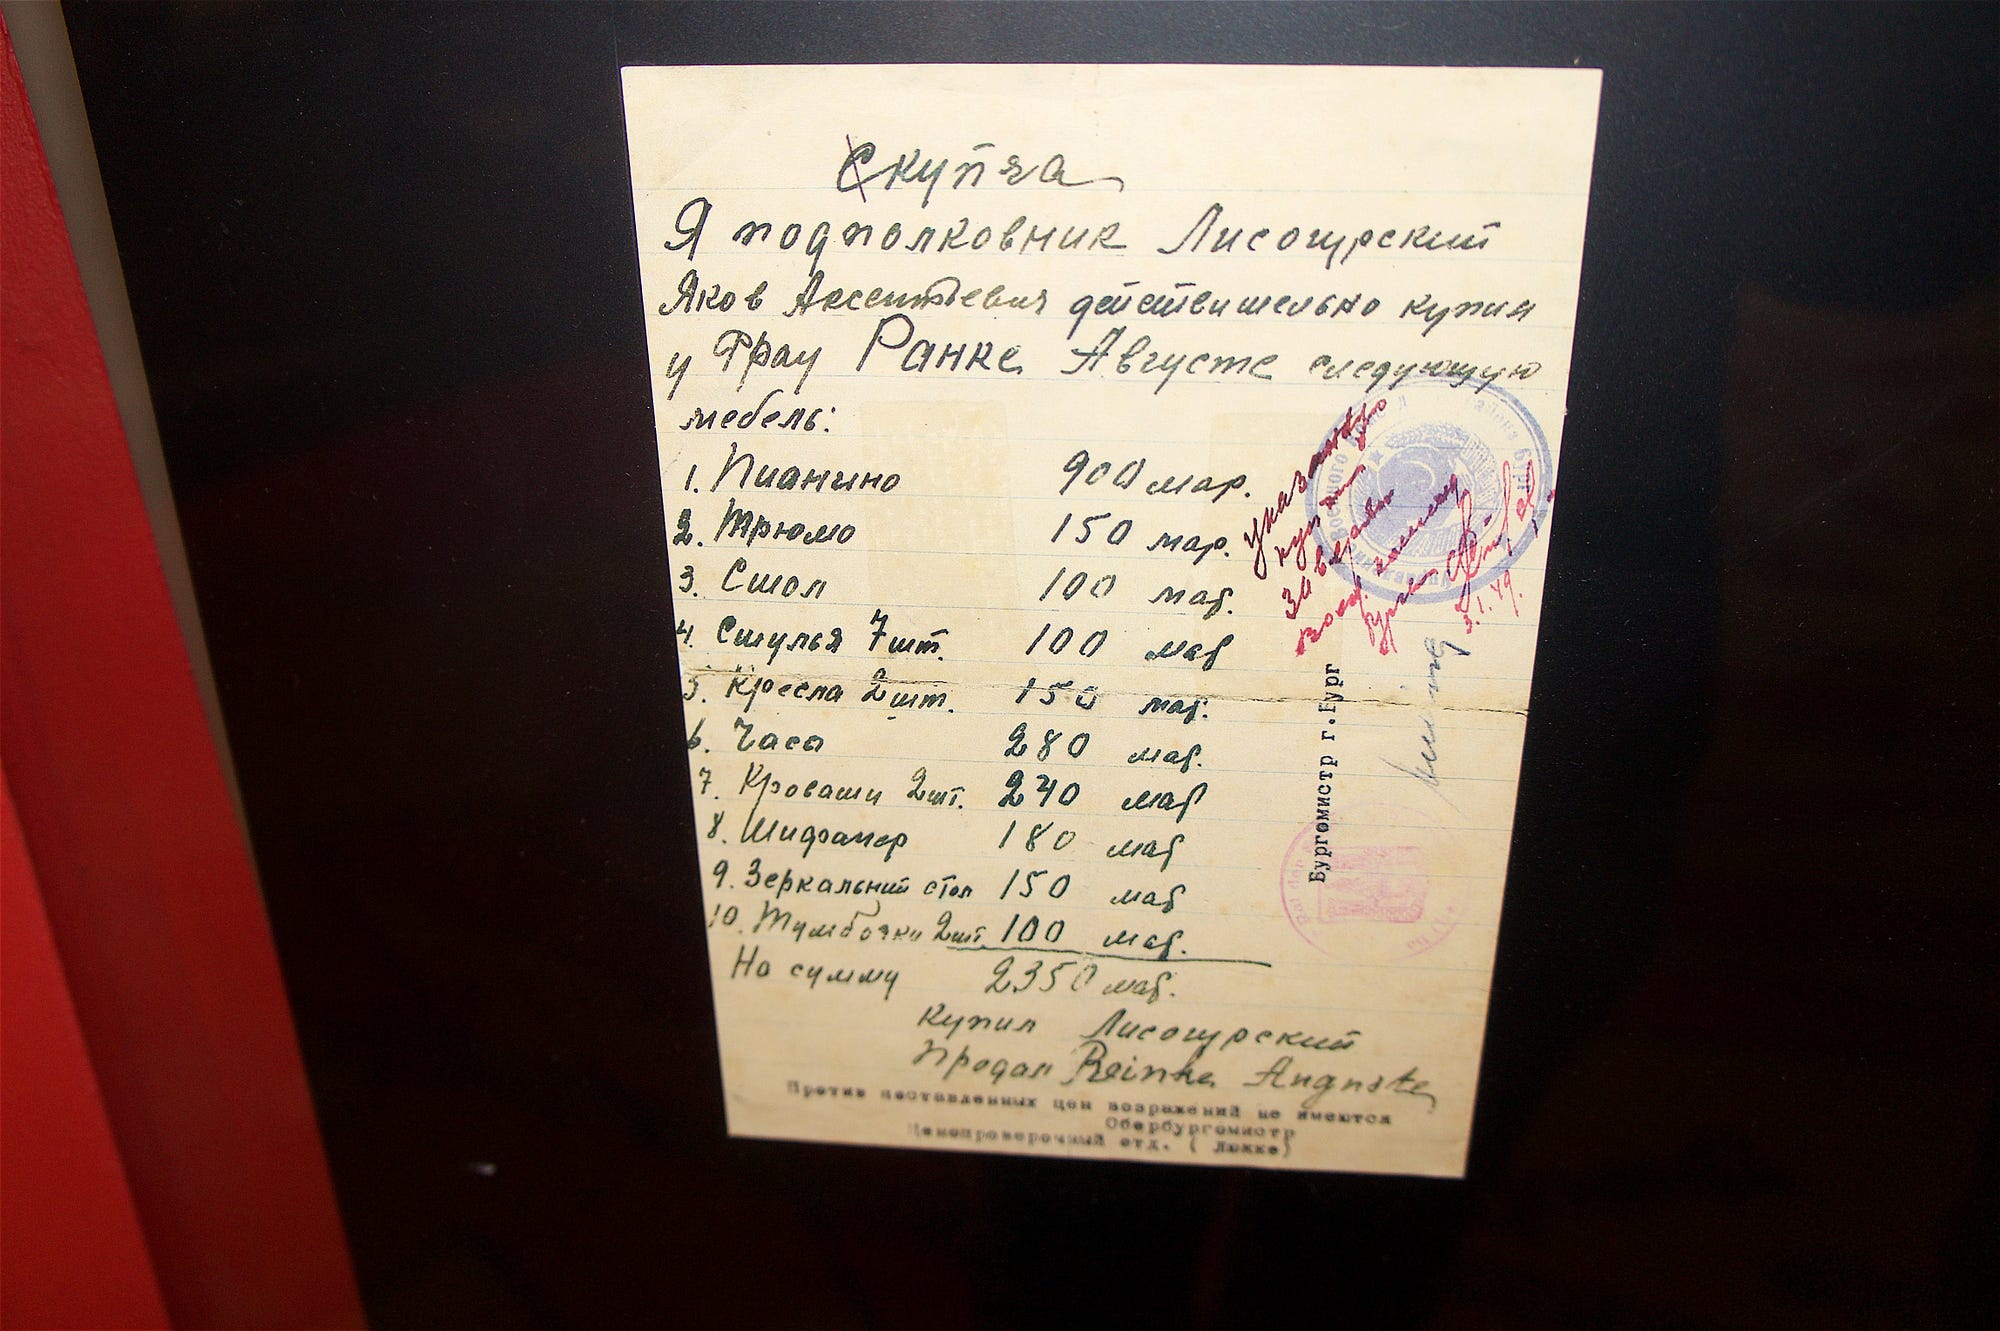 Скупча
Я подполковник Лисогурский
Яков Аксентьевич действительно купил
у Фрау Ранке Августе следующую
мебель:
1. Пианино 900 мар.
2. Трюмо 150 мар.
3. Стол 100 мар.
4. Стулья 7 шт. 100 мар
5. Кресла 2 шт. 150 мар.
6. Часы 280 мар.
7. Кровати 2 шт. 240 мар
8. Шифанер 180 мар
9. Зеркальний стол 150 мар
10. Тумбочки 2 шт. 100 мар.
На сумму 2350 мар.
Купил Лисогурский
Продал Reinke Auguste
Против поставленных цен возражений не имеются
Обербургомистр
Ценопроверочный отд. ( Люкке)
указанную
3.1.49.
Бургомистр г.Бург